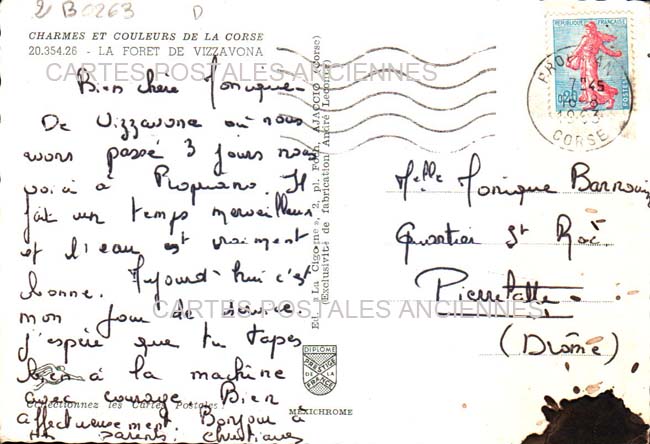 2 B0263 D
CHARMES ET COULEURS DE LA CORSE
20.354.26 - LA FORET DE VIZZAVONA
CARTES POSTALES ANCIENNES
Bien chère Monique -
De Vizzavona où nous
avons passé 3 jours nous
voici à Propriano. Il
fait un temps merveilleux
et l'eau est vraiment
bonne. Aujourd'hui c'est
mon jour de service.
J'espère que tu tapes
bien à la machine
avec courage. Bien
affectueusement. Bonjour à
tes parents. Christiane
Collectionnez les Cartes Postales !
Ed. « La Cigogne », 2, pl. Foch, AJACCIO (Corse)
(Exclusivité de fabrication André Leconte)
DIPLOME
PRESTIGE
DE LA
FRANCE
MEXICHROME
REPUBLIQUE FRANÇAISE
0,20
POSTES
1963
CORSE
Melle Monique
Quartier St Roc
Pierrelatte
(Drôme)
CARTES POSTALES ANCIENNES